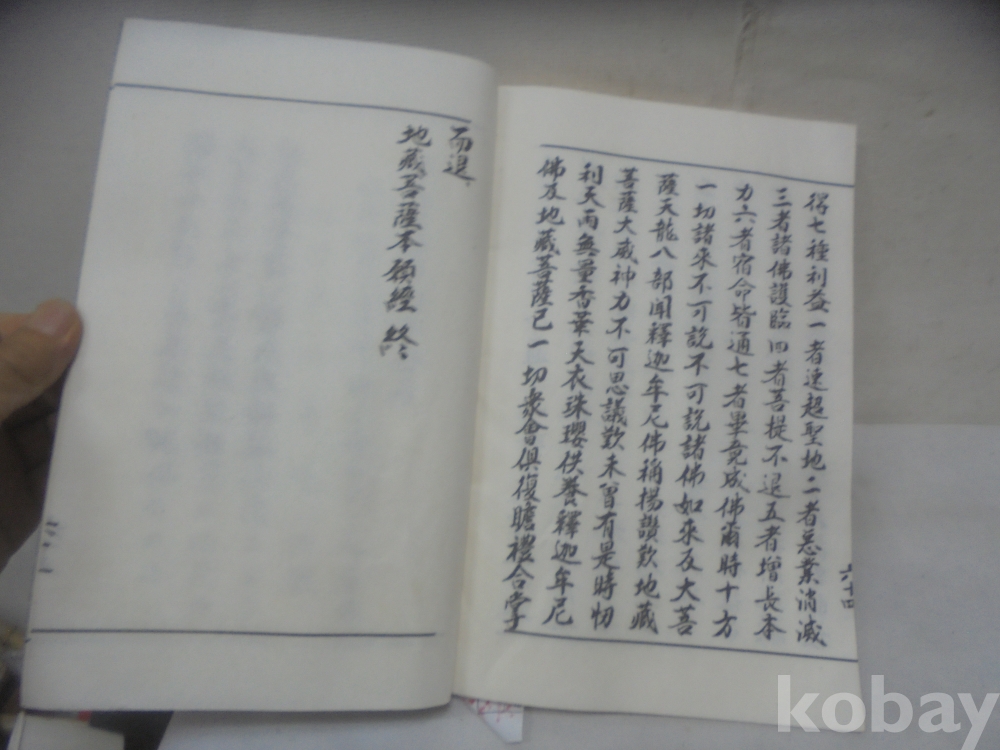 得七種利益一者速超聖地二者惡業消滅
三者諸佛護臨四者菩提不退五者增長本
力六者宿命皆通七者畢竟成佛爾時十方
一切諸來不可說不可說諸佛如來及大菩
薩天龍八部聞釋迦牟尼佛稱揚讚歎地藏
菩薩大威神力不可思議歎未曾有是時忉
利天雨無量香華天衣珠瓔供養釋迦牟尼
佛及地藏菩薩已一切衆會俱復瞻禮合掌
六十四
而退
地藏菩薩本願經 終
kobay